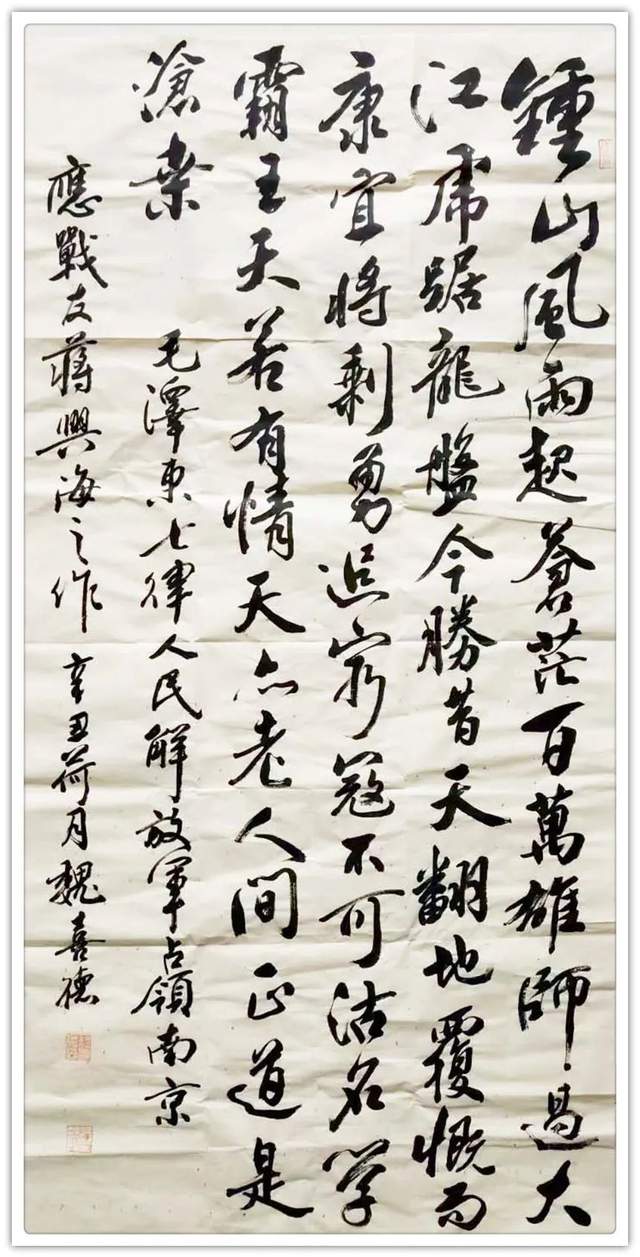 鍾山風雨起蒼茫百萬雄師過大
江虎踞龍盤今勝昔天翻地覆慨而
康宜將剩勇追窮寇不可沽名学
霸王天若有情天亦老人間正道是
滄桑
毛澤東七律人民解放軍占領南京
應戰友蔣興海之作辛丑荷月魏喜德